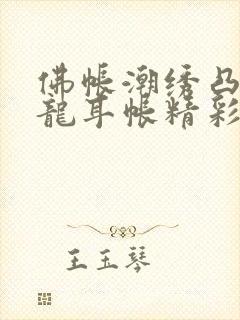 佛帐潮绣凸
龍耳帐精彩
王玉琴